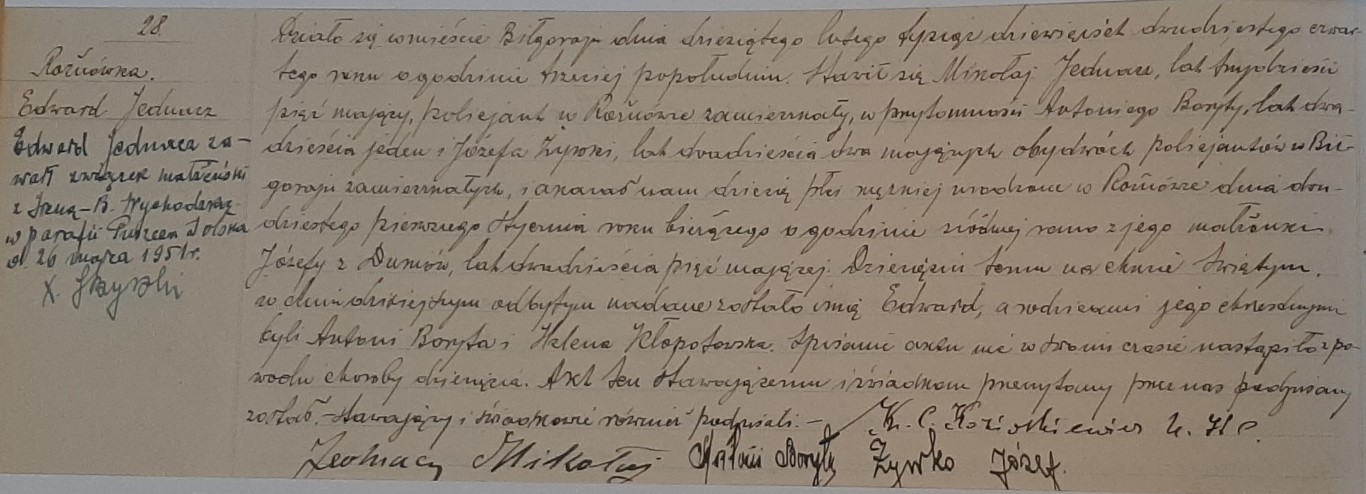 28.
Rożnówka.
Edward Jednacz
Edward Jednacz za-
warł związek małżeński
z Ireną-B.
w parafii Puszcza Solska
d. 26 maja 1951 r.
X.
Działo się w mieście Biłgoraju dnia dziesiątego lutego tysiąc dziewięćset dwudziestego czwar-
tego roku o godzinie trzeciej popołudniu. Stawił się Mikołaj Jednacz, lat trzydzieści
pięć mający, policjant w Rożnówce zamieszkały, w przytomności Antoniego Boryty, lat dwa-
dzieścia jeden i Józefa Żywki, lat dwadzieścia dwa mających obydwóch policjantów w Bił-
goraju zamieszkałych, i okazał nam dziecię płci męzkiej urodzone w Rożnówce dnia dwu-
dziestego pierwszego stycznia roku bieżącego o godzinie siódmej rano z jego małżonki
Józefy z lat dwadzieścia pięć mającej. Dziecięciu temu na chrzcie świętym,
w dniu dzisiejszym odbytym nadane zostało imię Edward, a rodzicami jego chrzestnymi
byli Antoni Boryta i Helena Kłopotowska. Spisanie aktu nie w swoim czasie nastąpiło z po-
wodu choroby dziecięcia. Akt ten stawającemu i świadkom przeczytany przez nas podpisany
został. Stawający i świadkowie również podpisali. — Ks. C. Koziołkiewicz U. S. C.
Jednacz Mikołaj Antoni Boryta Żywko Józef.